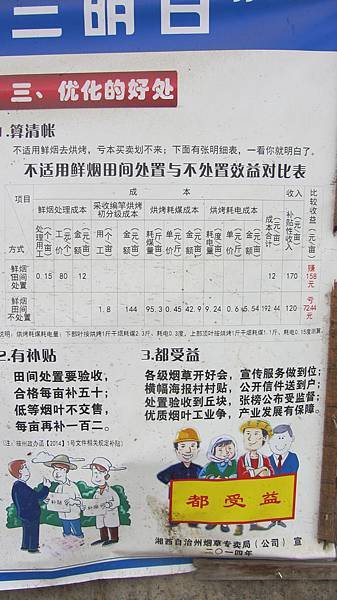 二明白
三、优化的好处
1.算清帐
不适用鲜烟去烘烤，亏本买卖划不来；下面有张明细表，一看你就明白了。
不适用鲜烟田间处置与不处置效益对比表
项目 成本 收入 比较收益（元/亩）
鲜烟处理成本 采收编竿烘烤初分级成本 烘烤耗煤成本 烘烤耗电成本 成本合计（元/亩） 补贴性收入（元/亩）
方式 处理用工（个/亩） 工价（元/个） 金额（元/亩） 用工（个/亩） 金额（元/亩） 耗煤量（斤/亩） 单价（元/斤） 金额（元/亩） 耗电量（度/亩） 单价（元/度） 金额（元/亩）
鲜烟田间处置 0.15 80 12 12 170 赚158元
鲜烟田间不处置 1.8 144 95.3 0.45 42.9 9.24 0.6 5.54 192.44 120 亏72.44元
说明：烘烤耗煤耗电量：下部叶按烘烤1斤干烟耗煤2.3斤、耗电0.3度，上部叶按烘烤1斤干烟耗煤1.1斤、耗电0.15度测算。
2.有补贴
田间处置要验收，
合格每亩补五十；
低等烟叶不交售，
每亩再补一百二。
（注：按州政办函【2014】1号文件相关规定补贴）
3.都受益
各级烟草开好会，宣传服务做到位；
横幅海报村村贴，公开信件送到户；
处置验收到丘块，张榜公布受监督；
优质烟叶工业争，产业发展有保障。
都受益
湘西自治州烟草专卖局（公司）宣
二〇一四年